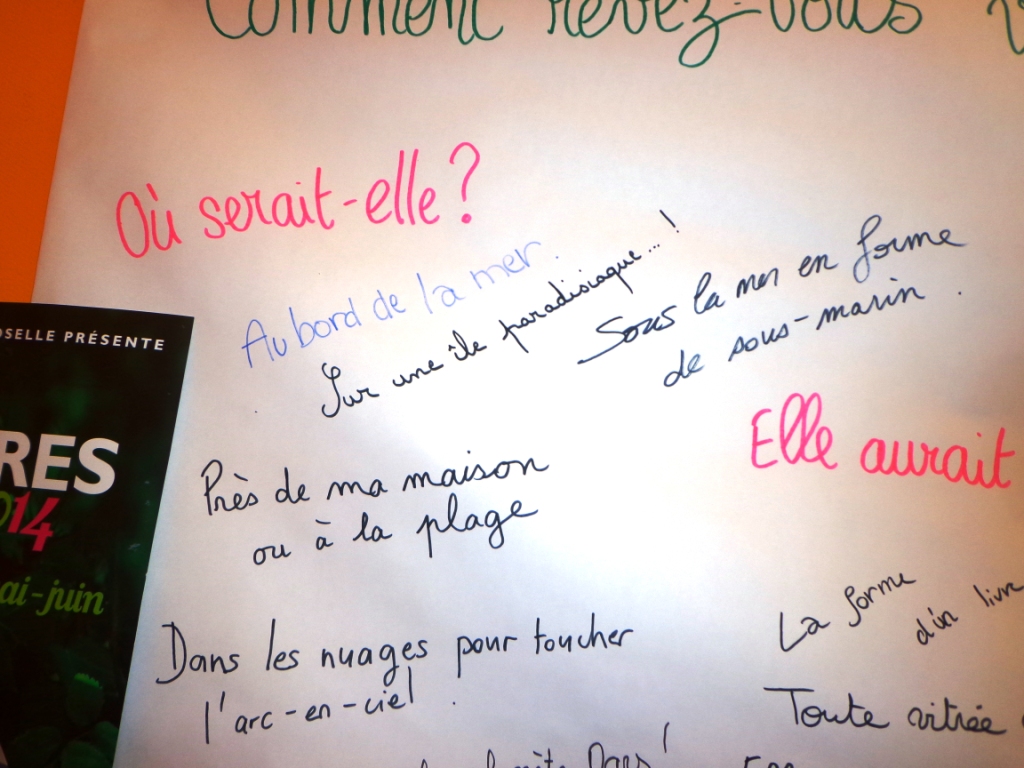 Comment rêvez-vous
Où serait-elle ?
Au bord de la mer.
Sur une île paradisiaque...!
Sous la mer en forme
de sous-marin.
OSELLE PRÉSENTE
RES
014
ai-juin
Elle aurait
Près de ma maison
ou à la plage
La forme
d'in livre
Dans les nuages pour toucher
l'arc-en-ciel.
Toute vitrée